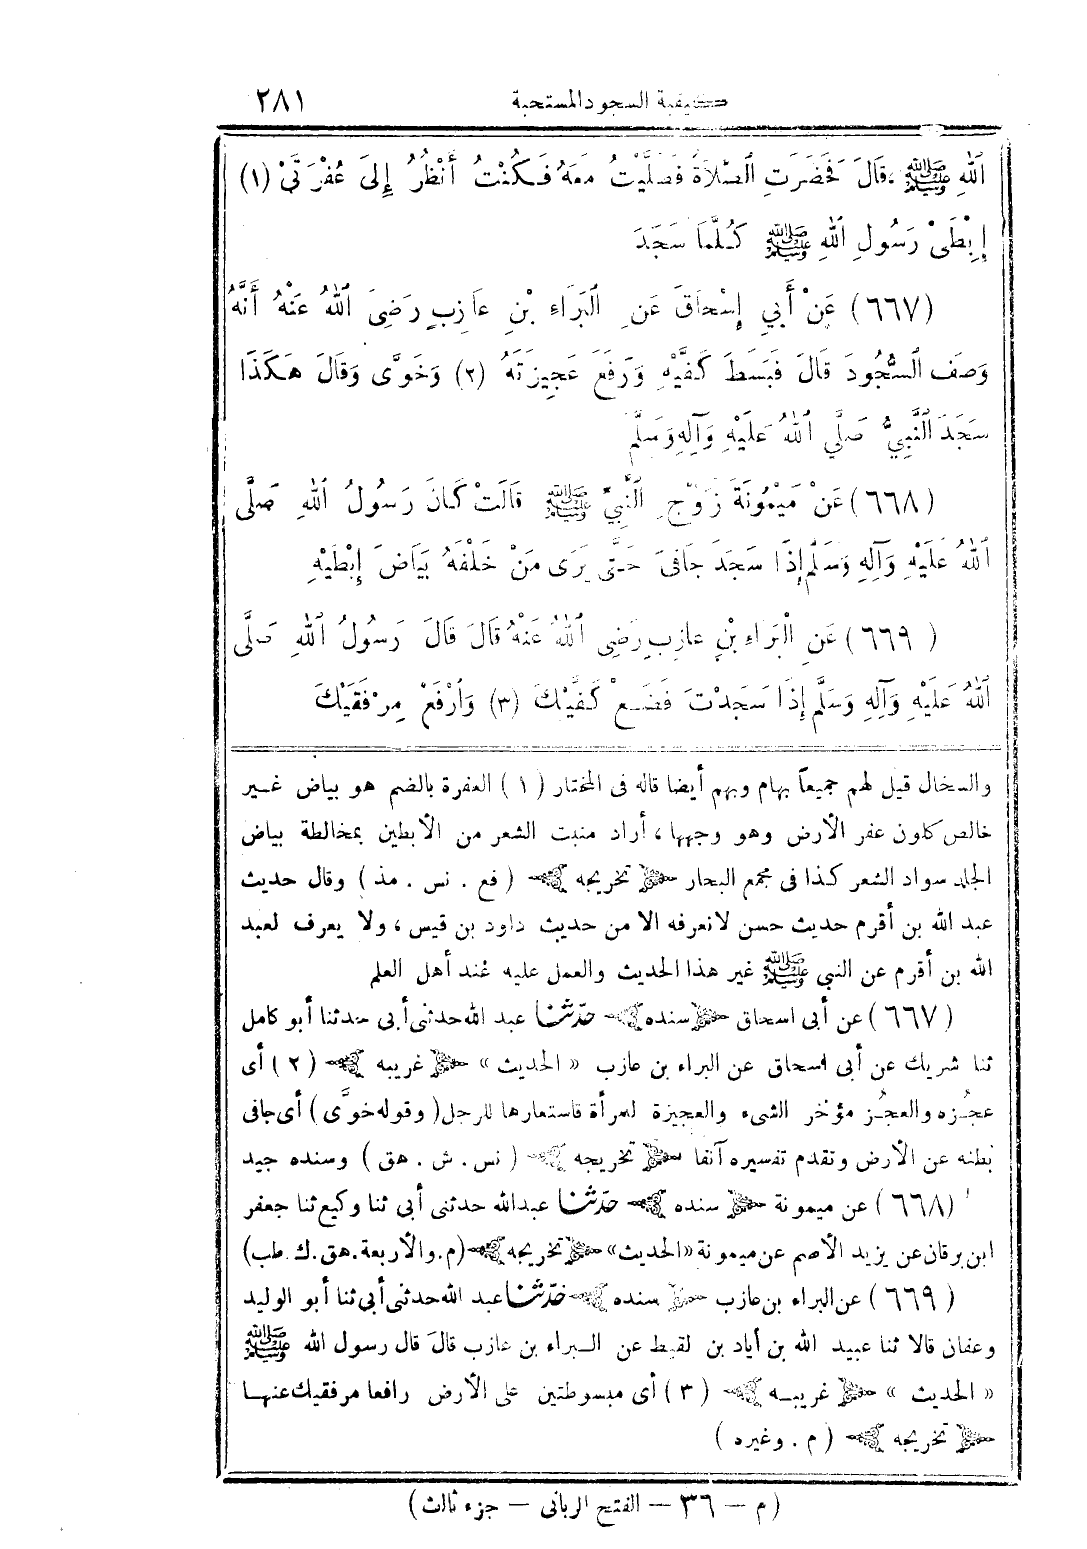 كيفية السجود المستحبة ٢٨١
اللهِ ﷺ، قَالَ فَحَضَرَتِ الصَّلَاةُ فَصَلَّيْتُ مَعَهُ فَكُنْتُ أَنْظُرُ إِلَى عُفْرَتَيْ (١)
إِبْطَيْ رَسُولِ اللهِ ﷺ كُلَّمَا سَجَدَ
(٦٦٧) عَنْ أَبِي إِسْحَاقَ عَنِ الْبَرَاءِ بْنِ عَازِبٍ رَضِيَ اللهُ عَنْهُ أَنَّهُ
وَصَفَ السُّجُودَ قَالَ فَبَسَطَ كَفَّيْهِ وَرَفَعَ عَجِيزَتَهُ (٢) وَخَوَّى وَقَالَ هَكَذَا
سَجَدَ النَّبِيُّ صَلَّى اللهُ عَلَيْهِ وَآلِهِ وَسَلَّمَ
(٦٦٨) عَنْ مَيْمُونَةَ زَوْجِ النَّبِيِّ ﷺ قَالَتْ كَانَ رَسُولُ اللهِ صَلَّى
اللهُ عَلَيْهِ وَآلِهِ وَسَلَّمَ إِذَا سَجَدَ جَافَى حَتَّى يَرَى مَنْ خَلْفَهُ بَيَاضَ إِبْطَيْهِ
(٦٦٩) عَنِ الْبَرَاءِ بْنِ عازِبٍ رَضِيَ اللهُ عَنْهُ قَالَ قَالَ رَسُولُ اللهِ صَلَّى
اللهُ عَلَيْهِ وَآلِهِ وَسَلَّمَ إِذَا سَجَدْتَ فَضَعْ كَفَّيْكَ (٣) وَارْفَعْ مِرْفَقَيْكَ
والسخال قيل لهم جميعاً بهام وبهم أيضا قاله فى المختار (١) العفرة بالضم هو بياض غير
خالص كلون عفر الأرض وهو وجهها، أراد منبت الشعر من الأبطين بمخالطة بياض
الجلد سواد الشعر كذا فى مجمع البحار ﴿تخريجه﴾ (فع . نس . مذ) وقال حديث
عبد الله بن أقرم حديث حسن لانعرفه الا من حديث داود بن قيس، ولا يعرف لعبد
الله بن أقرم عن النبي ﷺ غير هذا الحديث والعمل عليه عند أهل العلم
(٦٦٧) عن أبى اسحاق ﴿سنده﴾ حدّثنا عبد الله حدثنى أبى حدثنا أبو كامل
ثنا شريك عن أبى اسحاق عن البراء بن عازب «الحديث» ﴿غريبه﴾ (٢) أى
عجُزه والعجُز مؤخر الشىء والعجيزة للمرأة فاستعارها للرجل (وقوله خوَّى) أى جافى
بطنه عن الأرض وتقدم تفسيره آنفا ﴿تخريجه﴾ (نس . ش . هق) وسنده جيد
(٦٦٨) عن ميمونة ﴿سنده﴾ حدّثنا عبدالله حدثنى أبى ثنا وكيع ثنا جعفر
ابن برقان عن يزيد الأصم عن ميمونة «الحديث» ﴿تخريجه﴾ (م. والأربعة. هق. ك. طب)
(٦٦٩) عن البراء بن عازب ﴿سنده﴾ حدّثنا عبد الله حدثنى أبى ثنا أبو الوليد
وعفان قالا ثنا عبيد الله بن أياد بن لقيط عن البراء بن عازب قال قال رسول الله ﷺ
«الحديث» ﴿غريبه﴾ (٣) أى مبسوطتين على الأرض رافعا مرفقيك عنها
﴿تخريجه﴾ (م . وغيره)
(م – ٣٦ – الفتح الربانى – جزء ثالث)